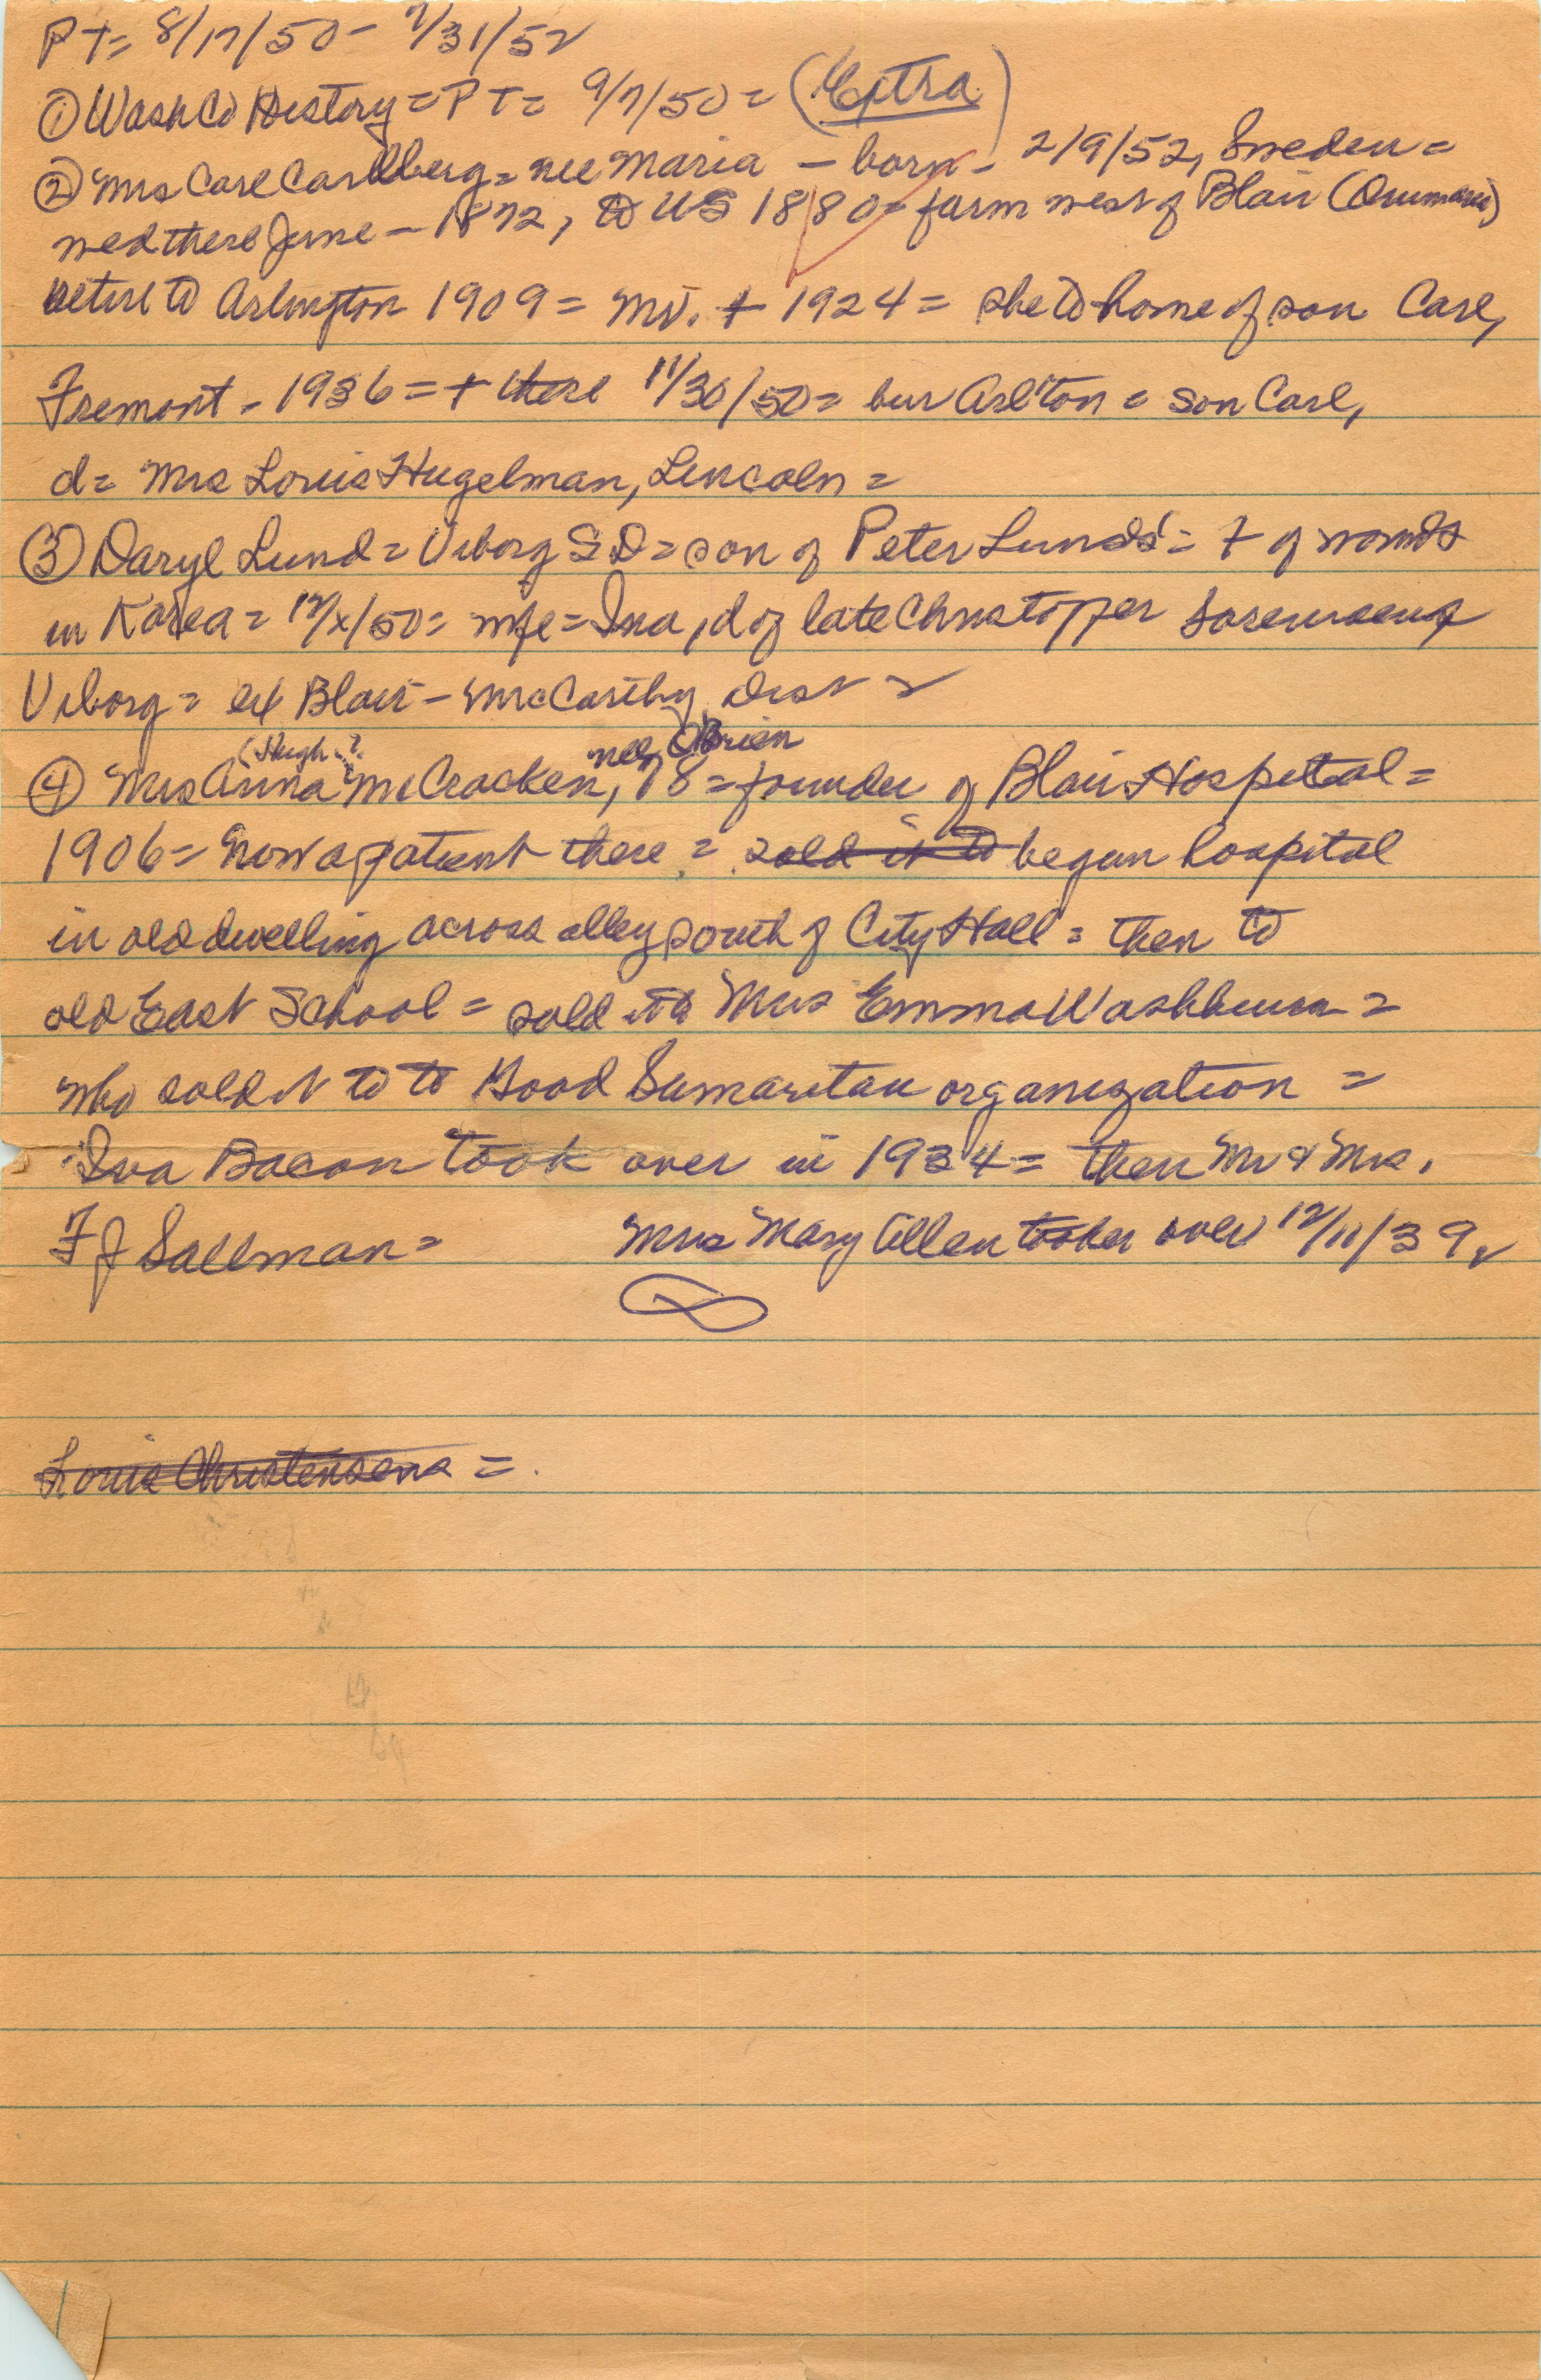 PT= 8/17/50 - 7/31/52
① Wash Co History = PT= 9/7/50 = (Extra)
② Mrs Carl Carlberg = nee Maria - born - 2/9/52, Sweden =
wed there June - 1872, to US 1880 = farm west of Blair (Orum)
retire to Arlington 1909 = Mr. + 1924 = she to home of son Carl,
Fremont - 1936 = + there 11/30/50 = bur Arl'ton = son Carl,
d= Mrs Louis Hugelman, Lincoln =
③ Daryl Lund = Viborg SD = son of Peter Lunds' = + of wounds
in Korea = 12/x/50 = wife = Ina, d of late Christopper Sorensens
Viborg = ex Blair - McCarthy Dist =
(Hugh ? nee OBrien
④ Mrs Anna McCracken, 78 = founder of Blair Hospital =
1906 = Now a patient there = sold it to began hospital
in old dwelling across alley south of City Hall = then to
old East School = sold it to Mrs Emma Washburn =
who sold it to to Good Samaritan organization =
Iva Bacon took over in 1934 = then Mr & Mrs.
F J Sallman = Mrs Mary Allen over 12/11/39
Louis Christensens =